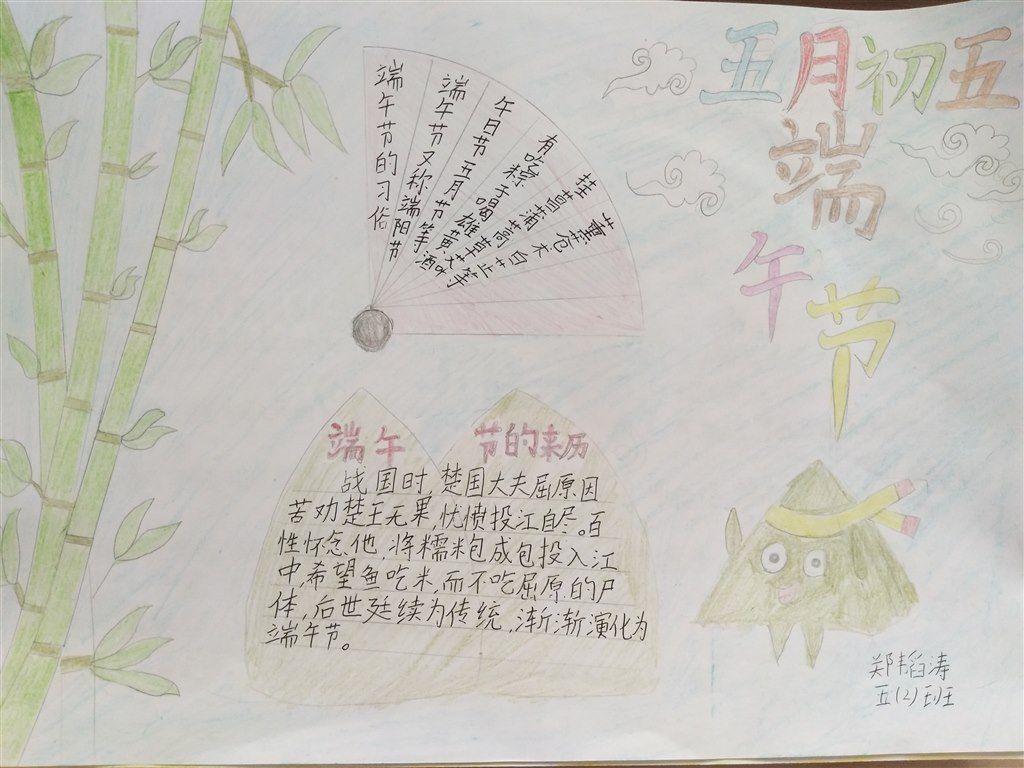 五月初五
端
午
节
端午节的习俗
端午节又称端阳节
午日节五月节等
有吃粽子喝雄黄酒。
挂菖蒲蒿草艾
薰苍木白芷等
端午节的来历
战国时,楚国大夫屈原因
苦劝楚王无果,忧愤投江自尽。百
姓怀念他,将糯米包成包投入江
中,希望鱼吃米,而不吃屈原的尸
体,后世延续为传统,渐渐演化为
端午节。
郑韬涛
五(2)班